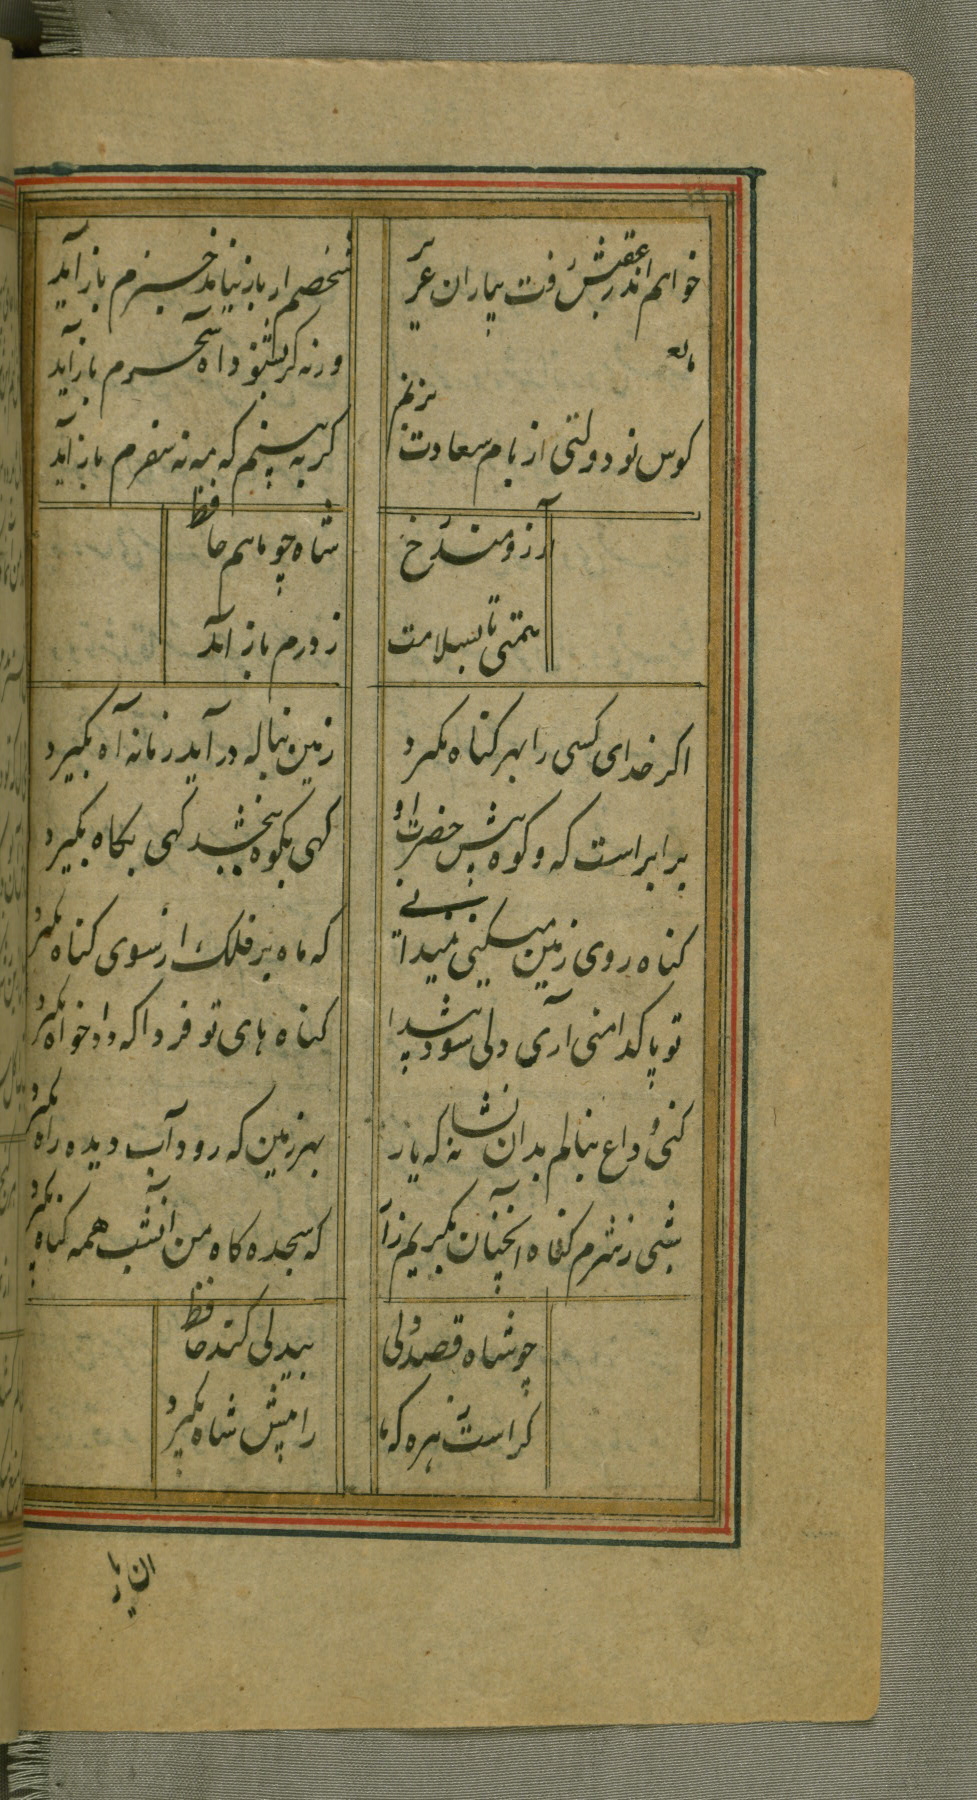 خواهم اندر عقبش رفت بیاران عزیز
شخصم ار باز نیاید خبرم باز آید
مانعش
ورنه گر بشنود آه سحرم باز آید
کوس نو دولتی از بام سعادت بزنم
گر به بینم که مه نو سفرم باز آید
آرزومند رخ
شاه چو ماهم حافظ
همتی تا بسلامت
ز درم باز آید
اگر خدای کسی را بهر گناه بگیرد
زمین بناله در آید زمانه آه بگیرد
برابر است که و کوه پیش حضرت او
گهی بکوه ببخشد گهی بکاه بگیرد
گناه روی زمین میکنی نمیدانی
که ماه بر فلک از سوی گناه بگیرد
تو پاکدامنی آری ولی شود پیدا
گناه های تو فردا که دادخواه بگیرد
کنی وداع بنالم بدان نشانه که یار
بهر زمین که رود آب دیده راه بگیرد
شبی ز شرم گناه آنچنان بگریم زار
که سجده گاه من آنشب همه گیاه بگیرد
چو شاه قصد دلی
بیدلی کند حافظ
کراست زهره که ما
را پیش شاه بگیرد